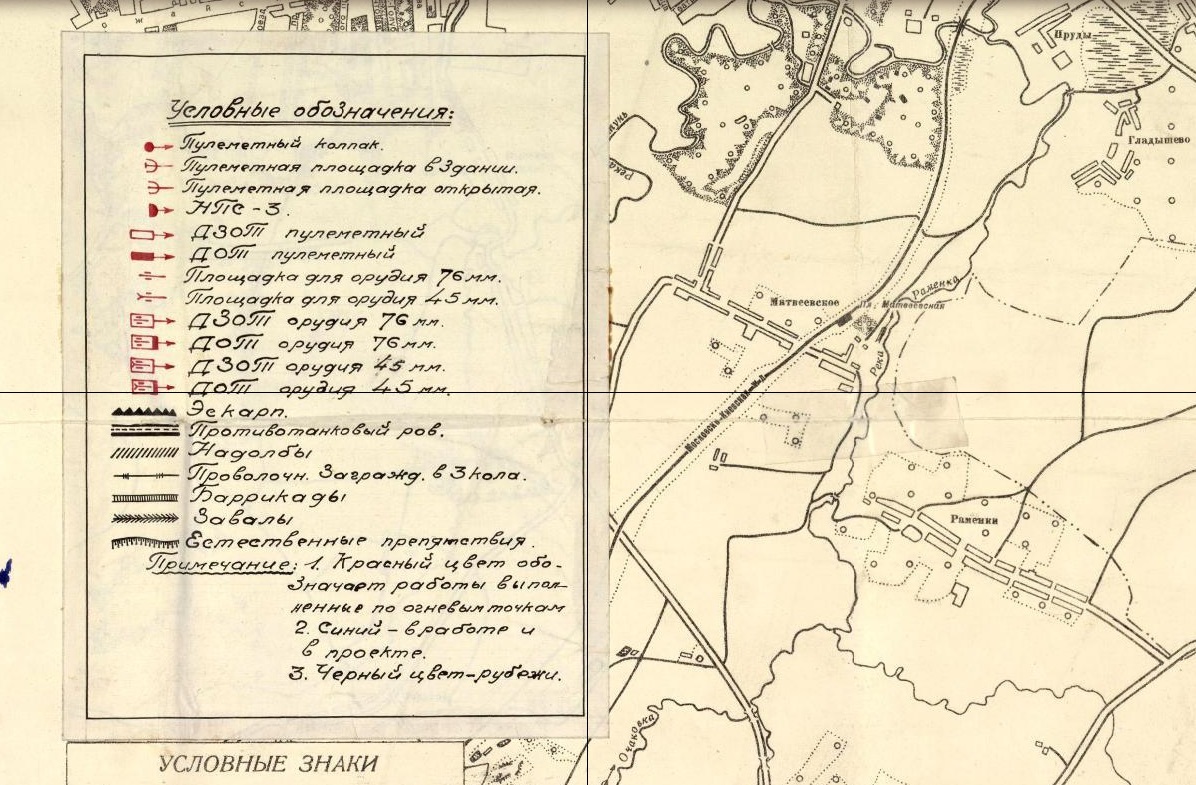 Условные обозначения:
Пулеметный колпак.
Пулеметная площадка в здании.
Пулеметная площадка открытая.
НПС-3.
ДЗОТ пулеметный
ДОТ пулеметный
Площадка для орудия 76 мм.
Площадка для орудия 45 мм.
ДЗОТ орудия 76 мм.
ДОТ орудия 76 мм.
ДЗОТ орудия 45 мм.
ДОТ орудия 45 мм.
Эскарп.
Противотанковый ров.
Надолбы
Проволочн. Загражд. в 3 кола.
Баррикады
Завалы
Естественные препятствия.
Примечание: 1. Красный цвет обо-
значает работы выпол-
ненные по огневым точкам
2. Синий - в работе и
в проекте.
3. Черный цвет-рубежи.
УСЛОВНЫЕ ЗНАКИ
Пруды
Гладышево
Раменка
Матвеевское
Пл. Матвеевская
Река
Московско-Киевская ж.д.
Раменки
Очаковка